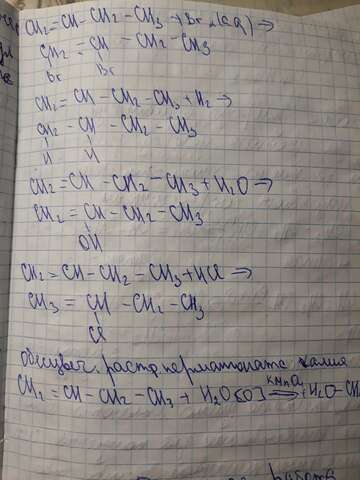 CH₂=CH-CH₂-CH₃+Br₂(aq)→
CH₂=CH-CH₂-CH₃
Br Br
CH₂=CH-CH₂-CH₃+H₂→
CH₂-CH-CH₂-CH₃
H H
CH₂=CH-CH₂-CH₃+H₂O→
CH₂=CH-CH₂-CH₃
OH
CH₂=CH-CH₂-CH₃+HCl→
CH₃=CH-CH₂-CH₃
Cl
обесцвеч. раств. перманганата калия
CH₂=CH-CH₂-CH₃+H₂O[O]
KMnO₄
работа